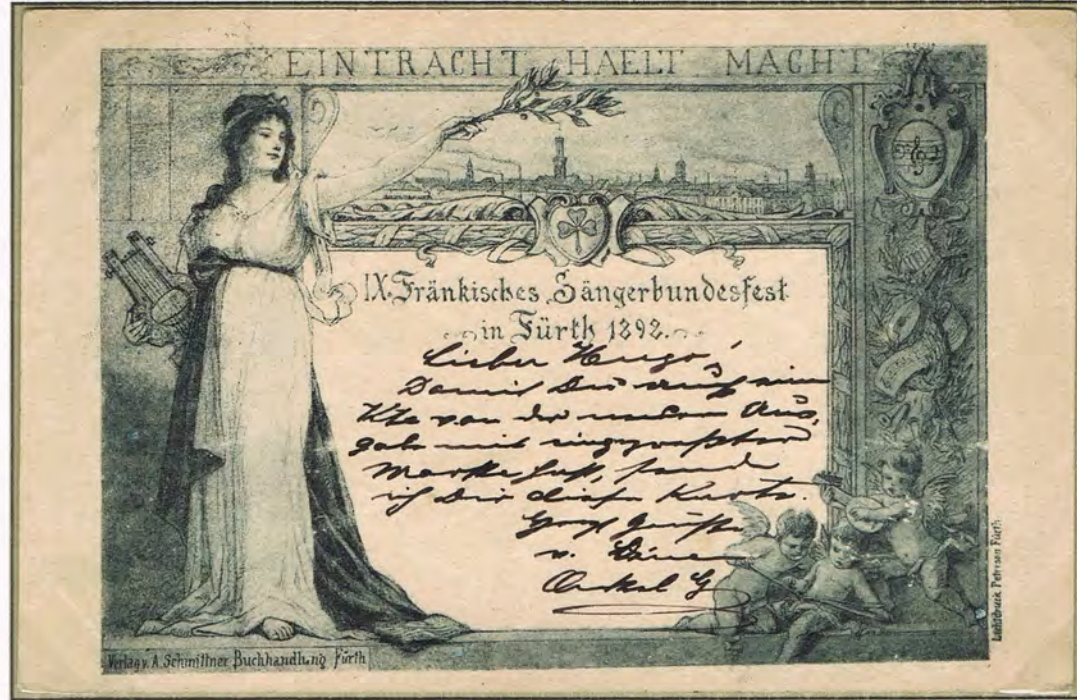 EINTRACHT HAELT MACHT
IX. Fränkisches Sängerbundesfest
in Fürth 1892.
Lieber Hugo!
Damit Du auch eine
Kte von der
gabe mit eingepreßter
Marke hast, sende
ich Dir diese Karte.
Grüße
v. Deinem
Onkel G
Verlag v. A. Schmittner Buchhandlung Fürth
Lichtdruck Petersen Fürth